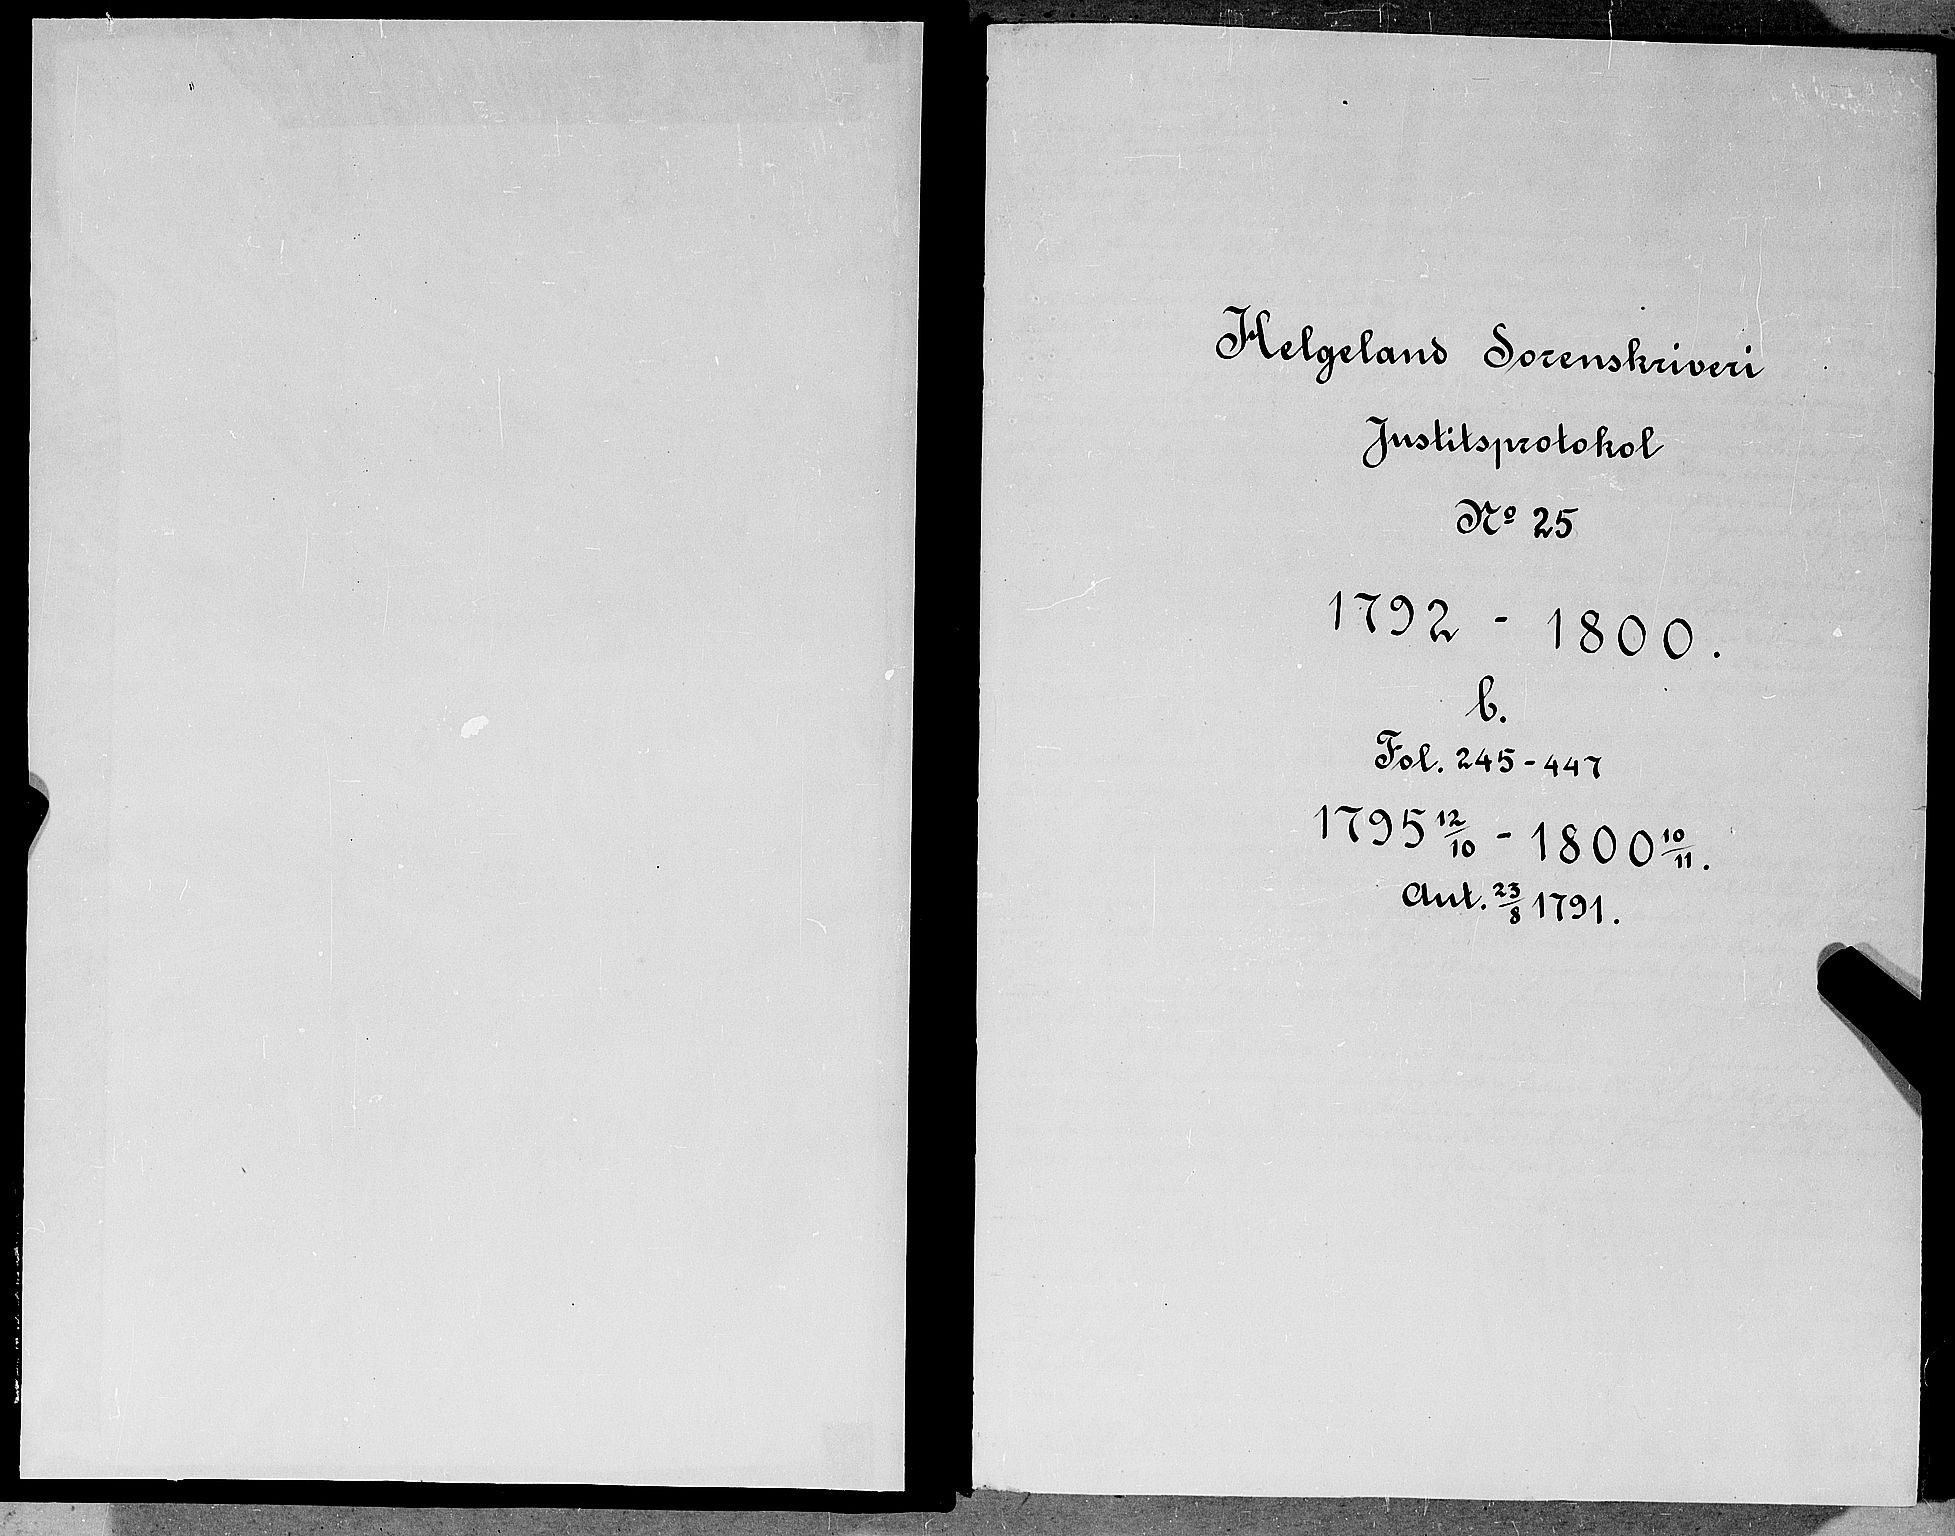 Helgeland Sorenskriveri
Justitsprotokol
Nº 25
1792 - 1800.
b.
Fol. 245-447
1795 12/10 - 1800 10/11.
Aut. 23/8 1791.